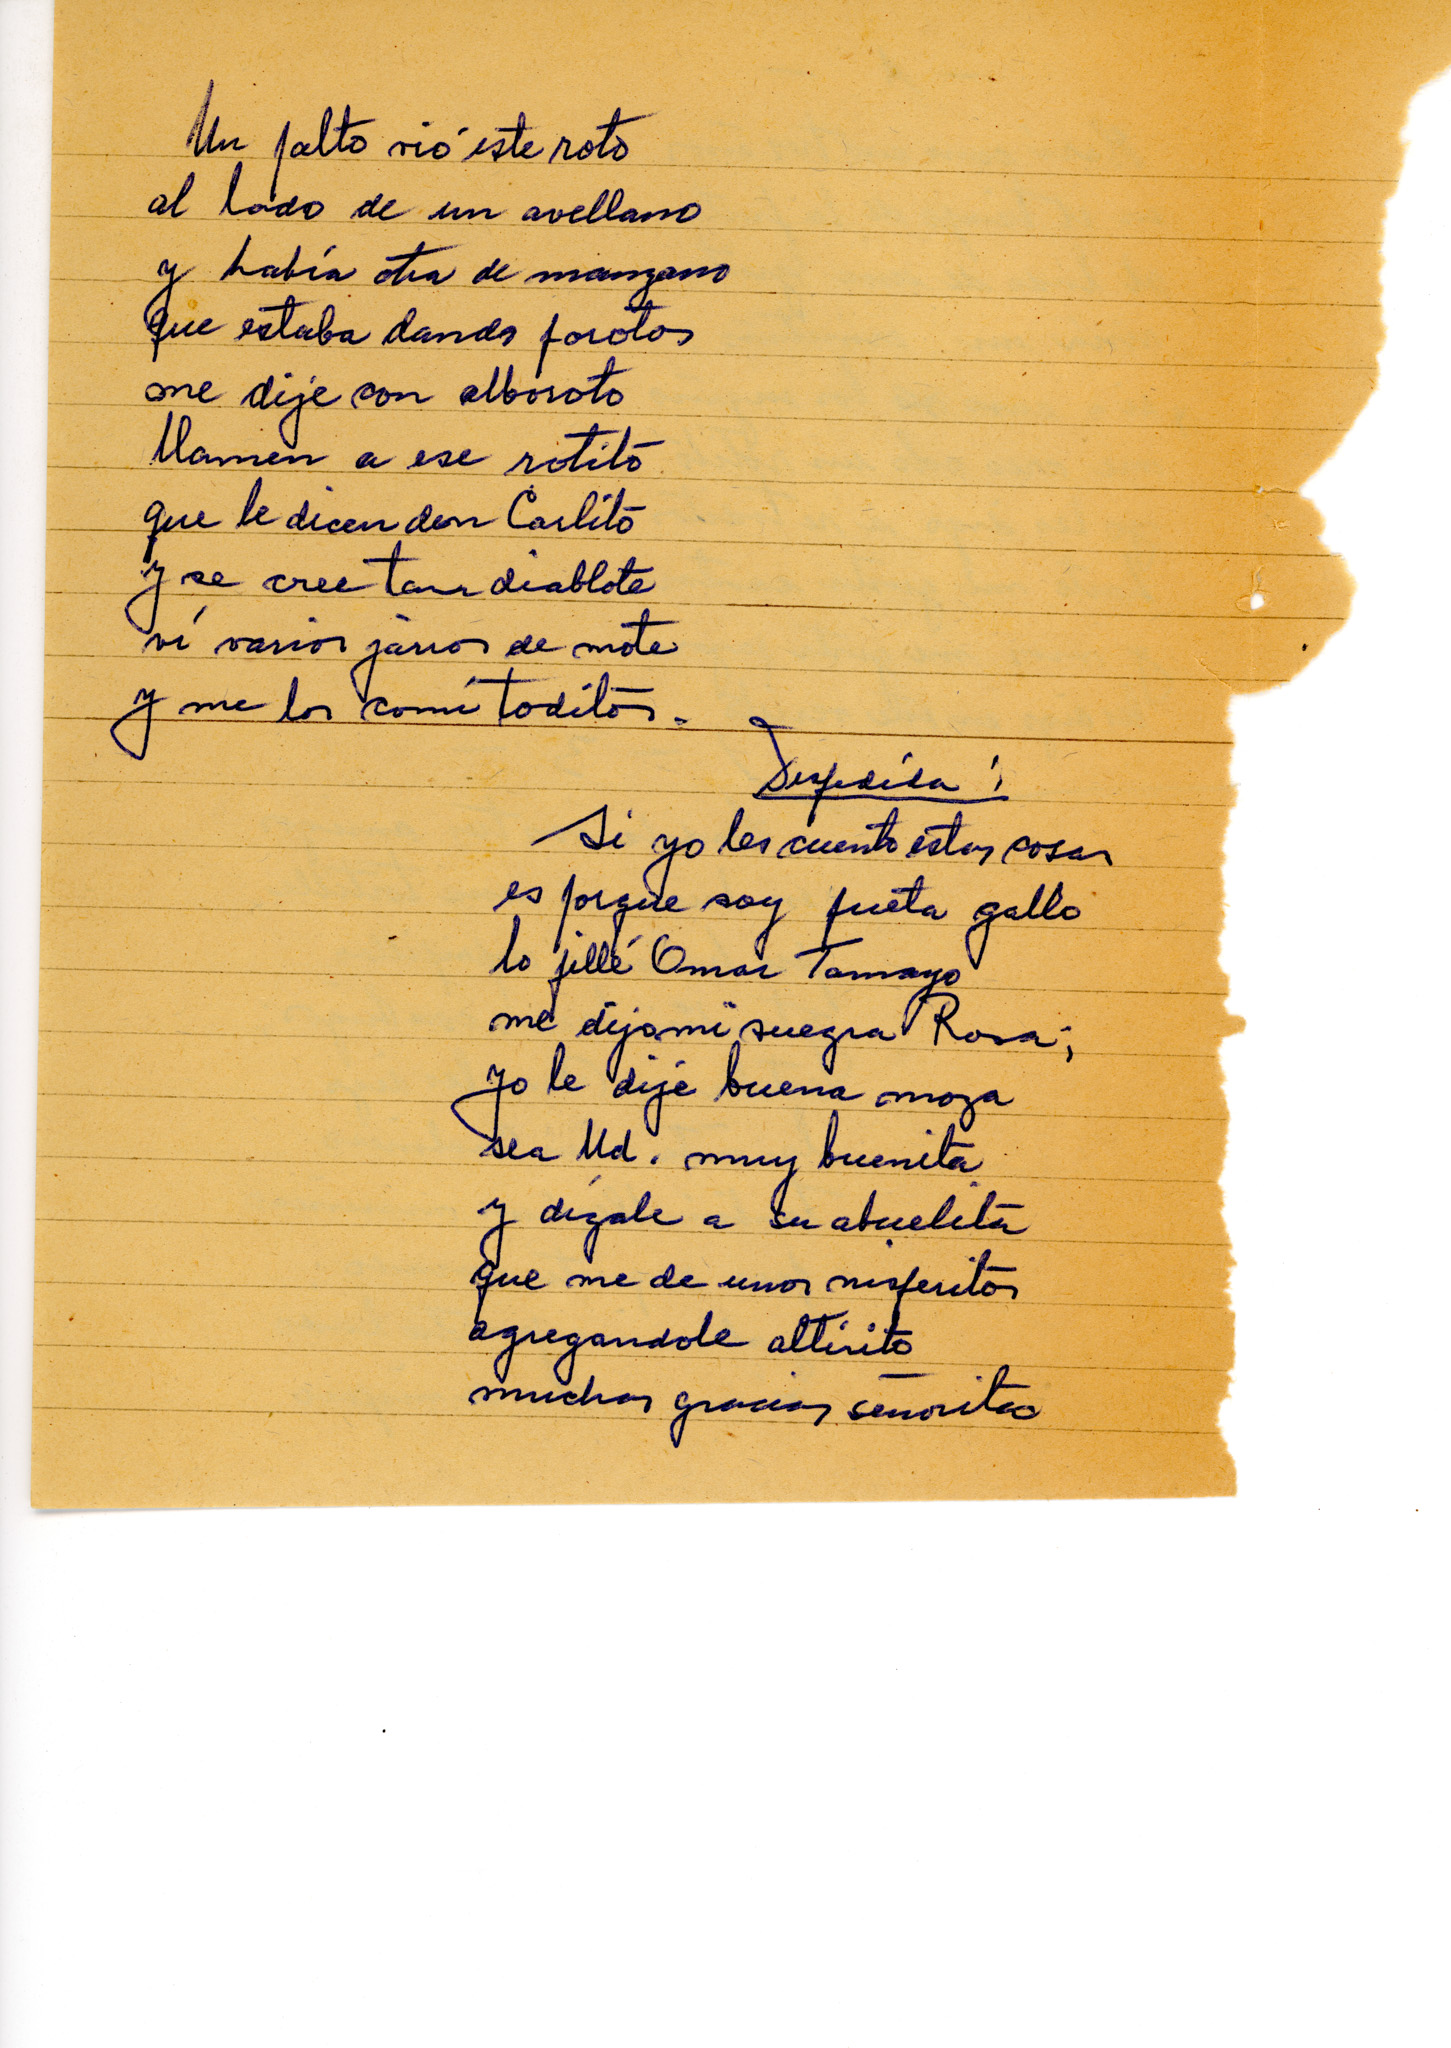 Un palto vió este roto
al lado de un avellano
y había otra de manzano
que estaba dando porotos
me dije con alboroto
llamen a ese rotito
que le dicen don Carlito
y se cree tan diablote
ví varios jarros de mote
y me los comí toditos.
Despedida:
Si yo les cuento estas cosas
es porque soy pueta gallo
lo jillé Omar Tamayo
me dijo mi suegra Rosa;
yo le dije buena moza
sea Ud. muy buenita
y dígale a su abuelita
que me de unos nisperitos
agregandole altirito
muchas gracias señorita